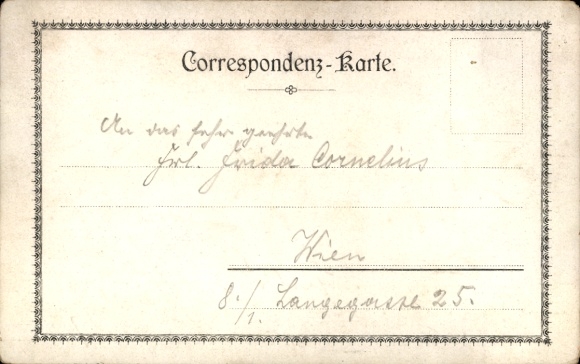 Correspondenz-Karte.
An das sehr geehrte
Frl. Frida Cornelius
Wien
8./1. Langegasse 25.